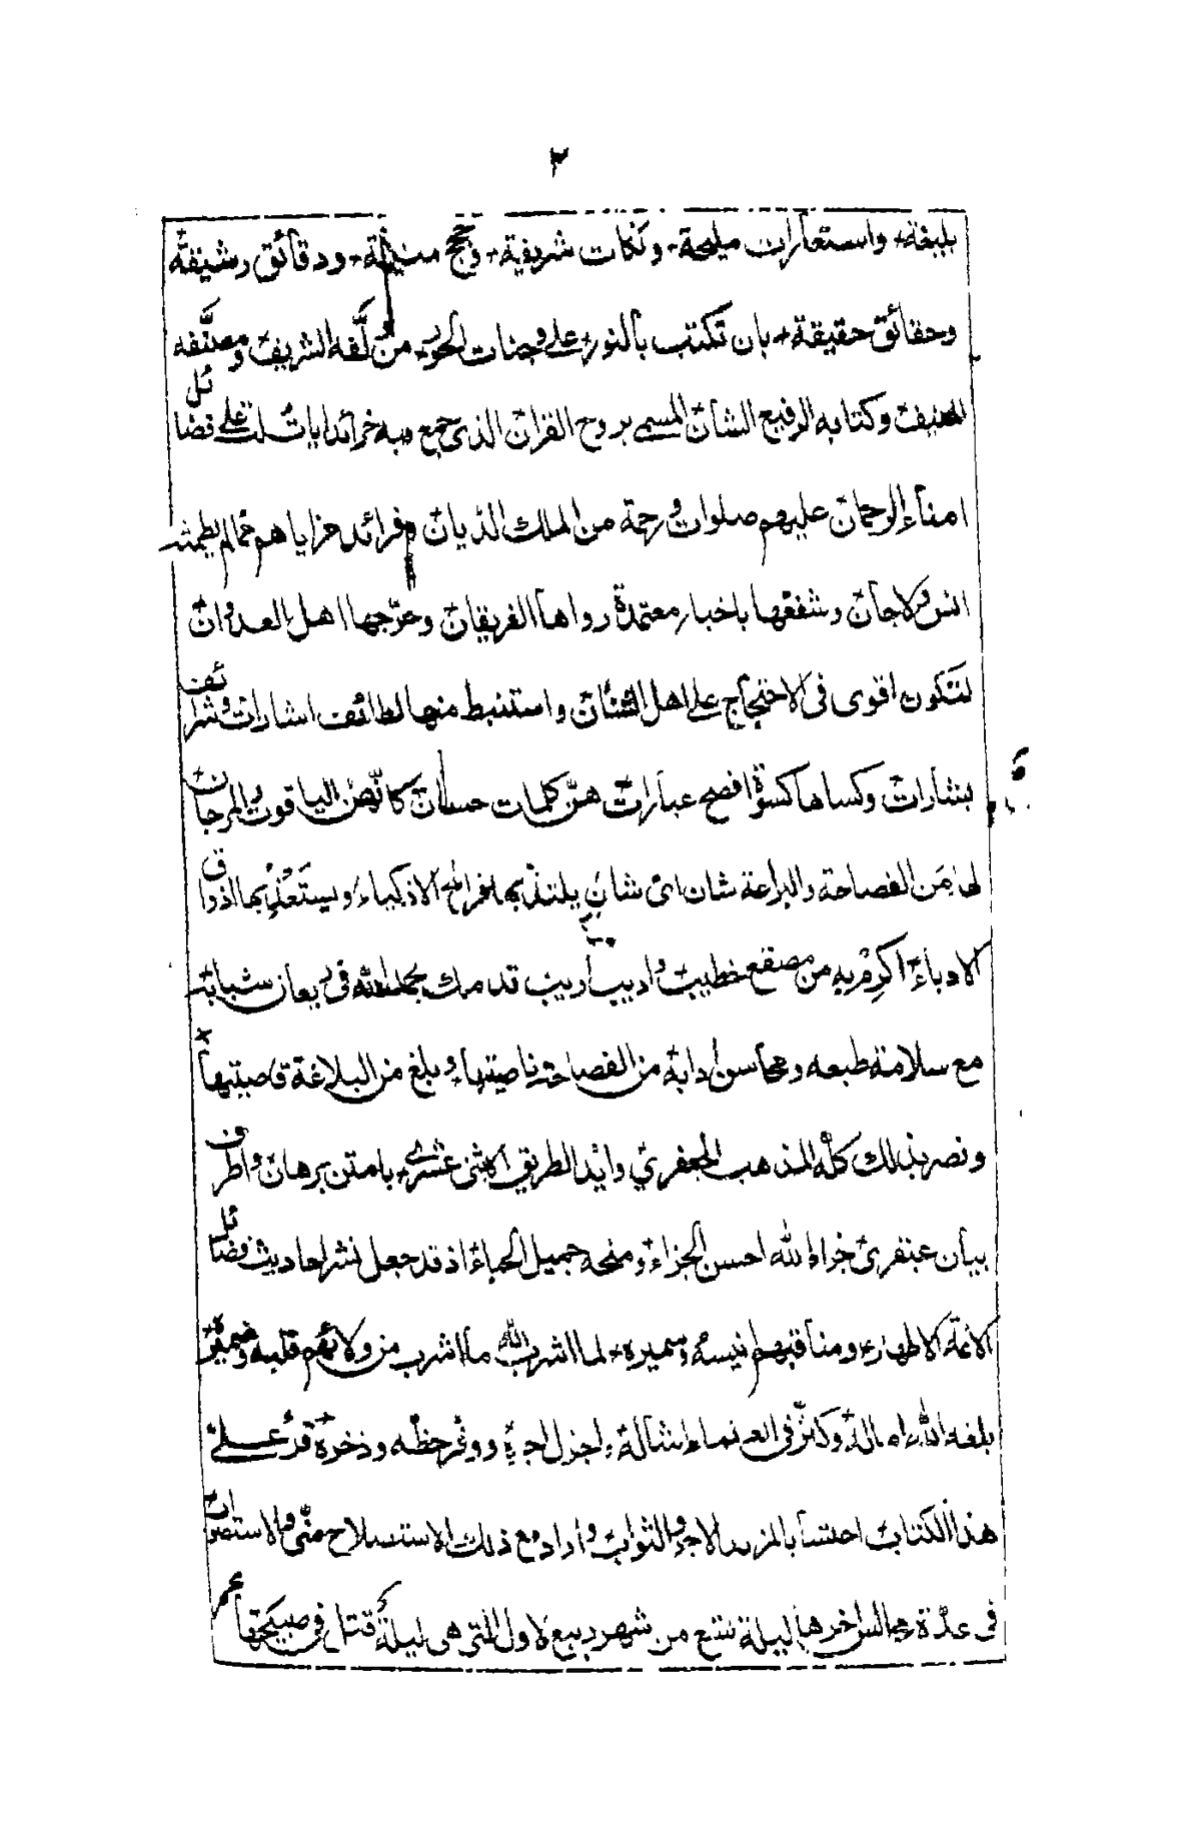 ٣
بليغة واستعارات مليحة ونكات شريفة وحجج منيفة ودقائق رشيقة
وحقائق حقيقة بان تكتب بالنور على وجنات الحور من مؤلَّفه الشريف ومصنَّفه
المنيف وكتابه الرفيع الشان المسمى بروح القران الذي جمع فيه خرائد ايات دلت على فضائل
امناء الرحمان عليهم صلوات ورحمة من الملك الديان وفرائد مزايا هم مما لم يطمثه
انس ولا جان وشفعها باخبار معتمدة رواها الفريقان وخرّجها اهل العدوان
لتكون اقوى في الاحتجاج على اهل الشنأن واستنبط منها لطائف اشارات وشرائف
بشارات وكساها كسوة افصح عبارات هنّ كلمات حسان كانّهنّ الياقوت والمرجان
لها من الفصاحة والبراعة شان اى شان يلتذ بها قرائح الاذكياء ويستعذب بها اذواق
الادباء اكرم به من مصقع خطيب واديب اريب قد ملك بحمد الله في ريعان شبابه
مع سلامة طبعه ومحاسن ادابه من الفصاحة ناصيتها وبلغ من البلاغة قاصيتها
ونصر بذلك كله المذهب الجعفري وايّد الطريق الاثنى عشرى بامتن برهان واطرف
بيان عبقرى جزاه الله احسن الجزاء ومنحه جميل الحباء اذ قد جعل نشر احاديث فضائل
الائمة الاطهار ومناقبهم انيسه وسميره لما اشرب الله ما اشرب من ولائهم قلبه وضميره
بلغه الله اماله وكثّر فى العلماء امثاله واجزل اجره ووفّر حظّه وذخره قرء علىّ
هذا الكتاب احتسابا لمزيد الاجر والثواب واراد مع ذلك الاستصلاح منّى والاستصواب
فى عدّة مجالس اخرها ليلة تسع من شهر ربيع الاول التى هى ليلة قتل فى صبيحتها